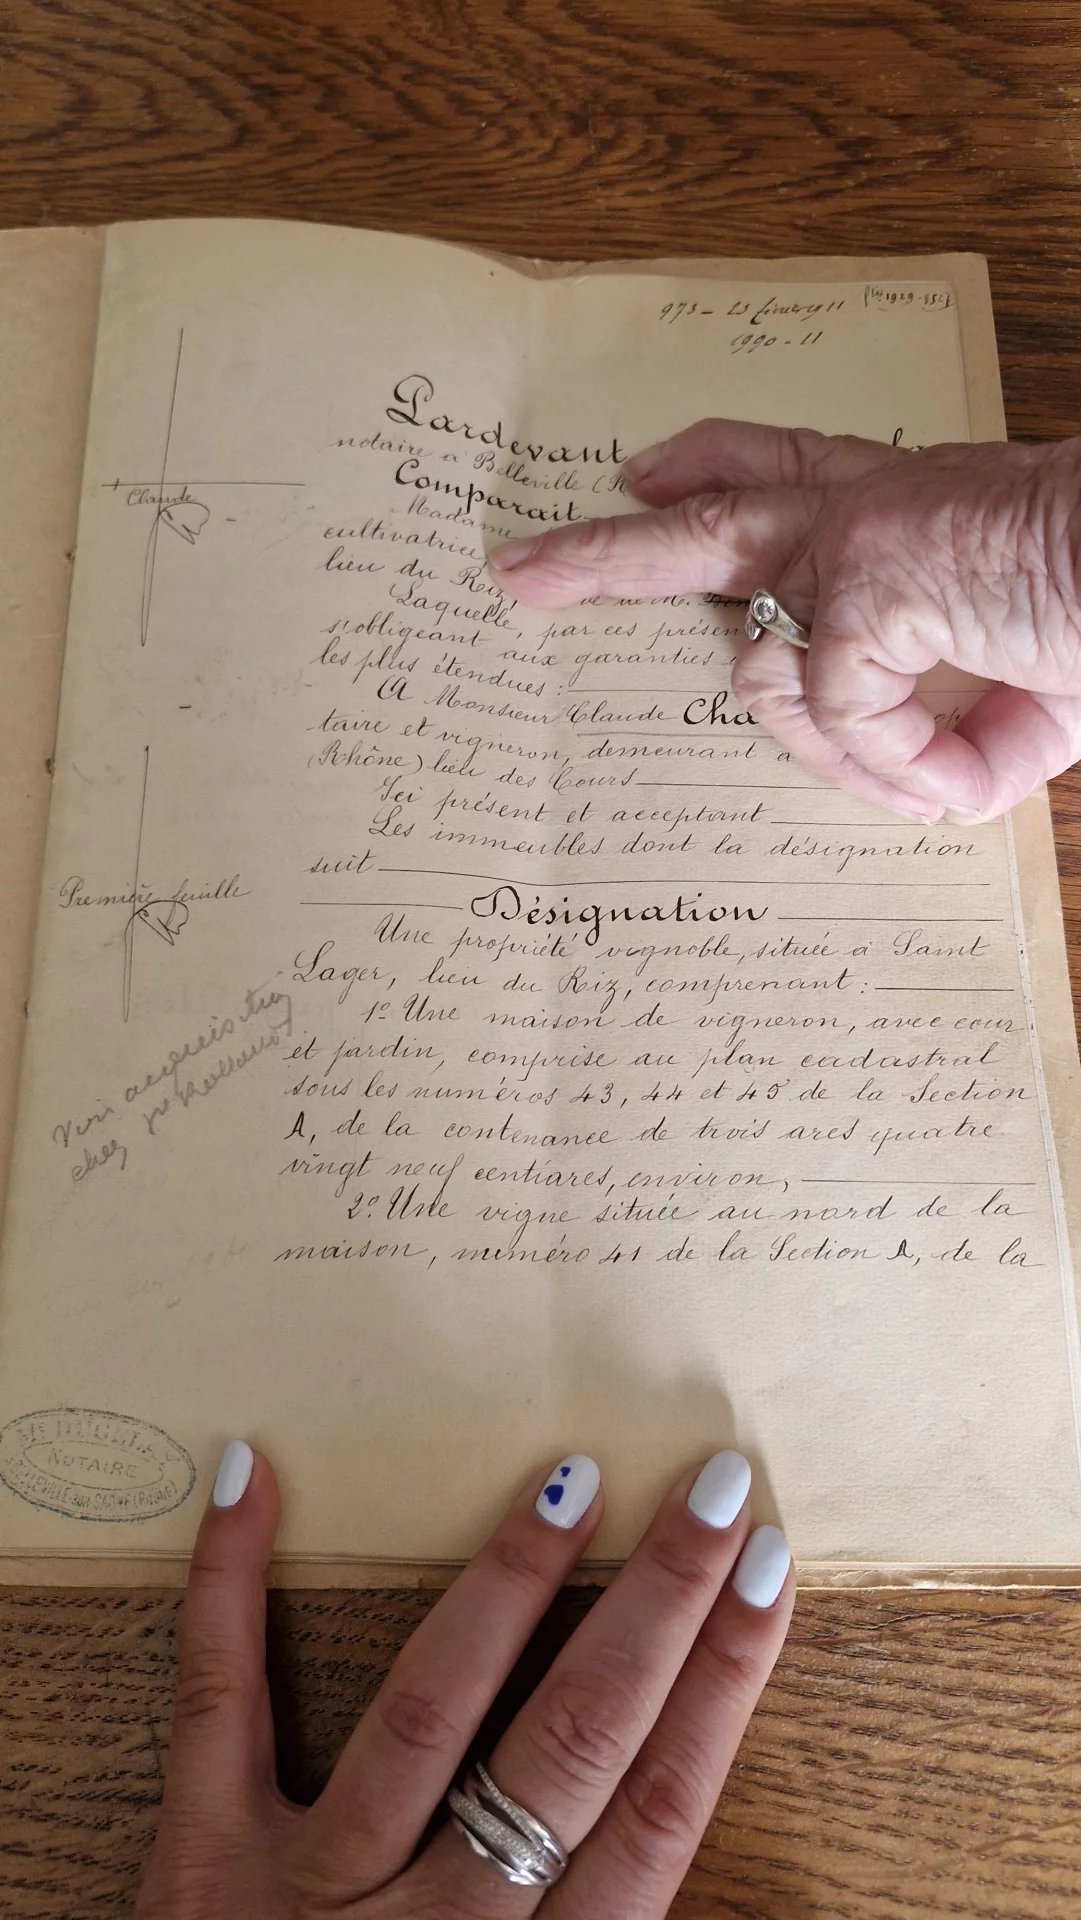 973 - 23 
1990 - 11
Pardevant
notaire à Belleville (R
Comparait
Madame
cultivatrice
lieu du Riz,
ve de M.
Laquelle, par ces présen
s'obligeant aux garanties
les plus étendues :
A Monsieur Claude Cha
taire et vigneron, demeurant à
(Rhône) lieu des Cours
Ici présent et acceptant
Les immeubles dont la désignation
suit
Désignation
Une propriété vignoble, située à Saint
Lager, lieu du Riz, comprenant :
1º Une maison de vigneron, avec cour
et jardin, comprise au plan cadastral
sous les numéros 43, 44 et 45 de la Section
A, de la contenance de trois ares quatre
vingt neuf centiares, environ,
2º. Une vigne située au nord de la
maison, numéro 41 de la Section A, de la
Chaude
Première feuille
chez
NOTAIRE
BELLEVILLE-SUR-SAONE (RHONE)